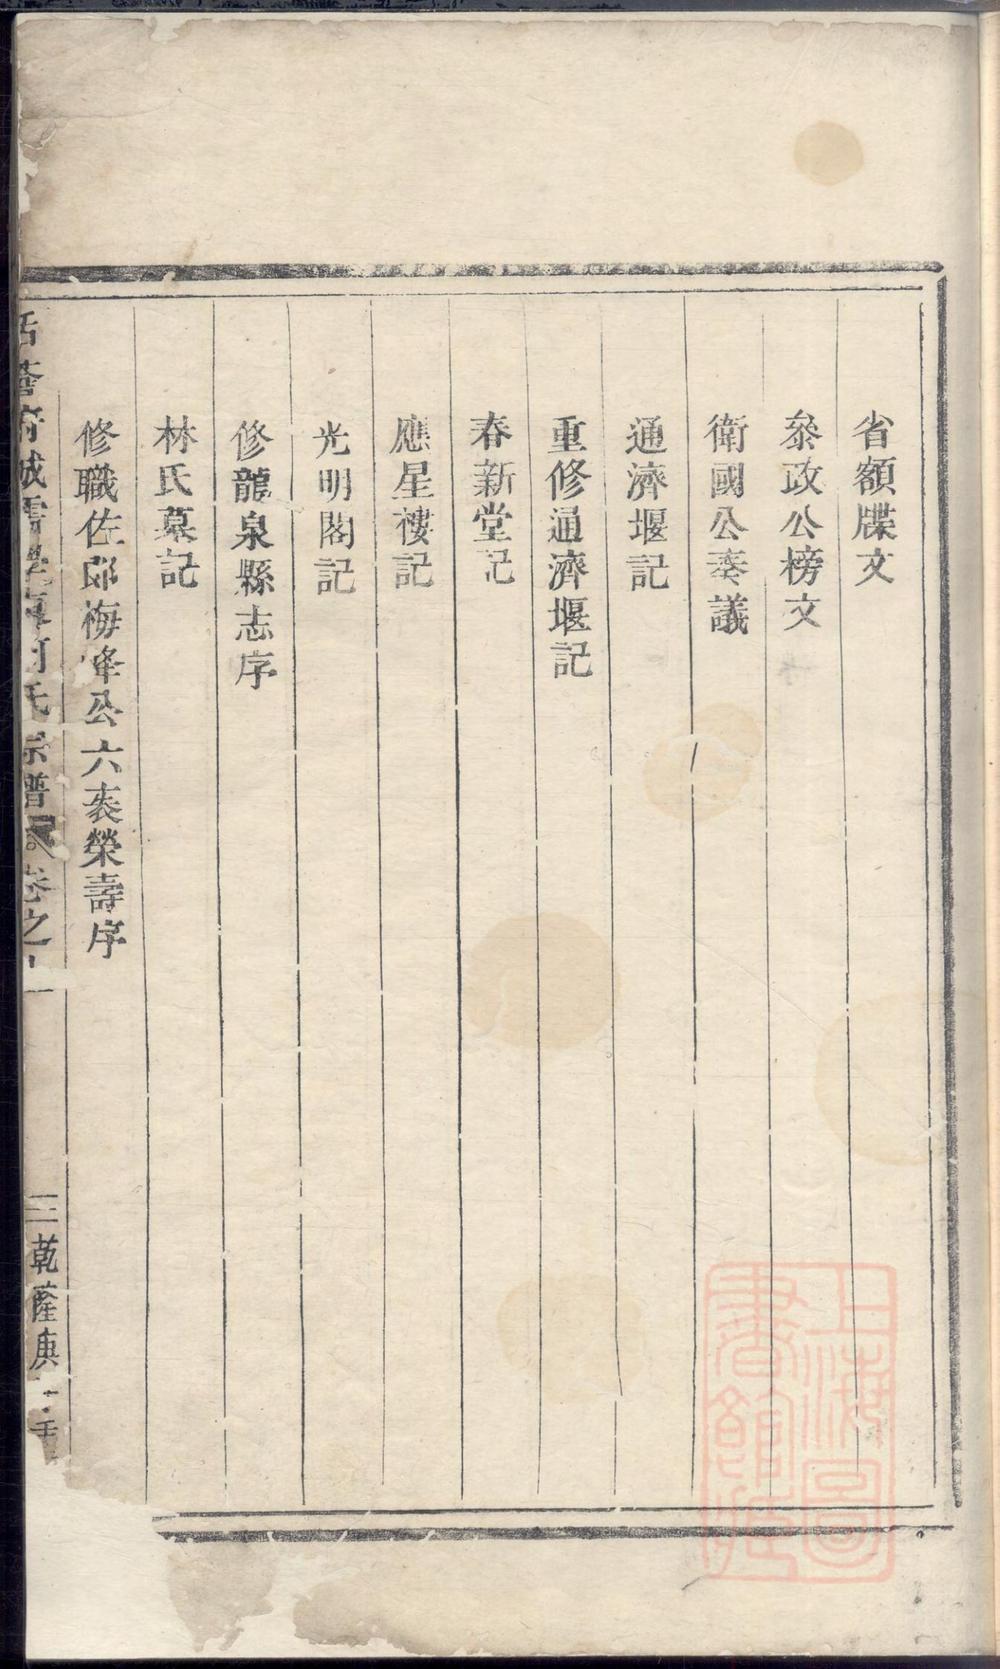 省額牒文
叅政公榜文
衛國公奏議
通濟堰記
重修通濟堰記
春新堂記
應星樓記
光明閣記
修龍泉縣志序
林氏墓記
修職佐郎梅峰公六袠榮壽序
氏宗譜 卷之
三 乾隆庚
上海圖書館藏